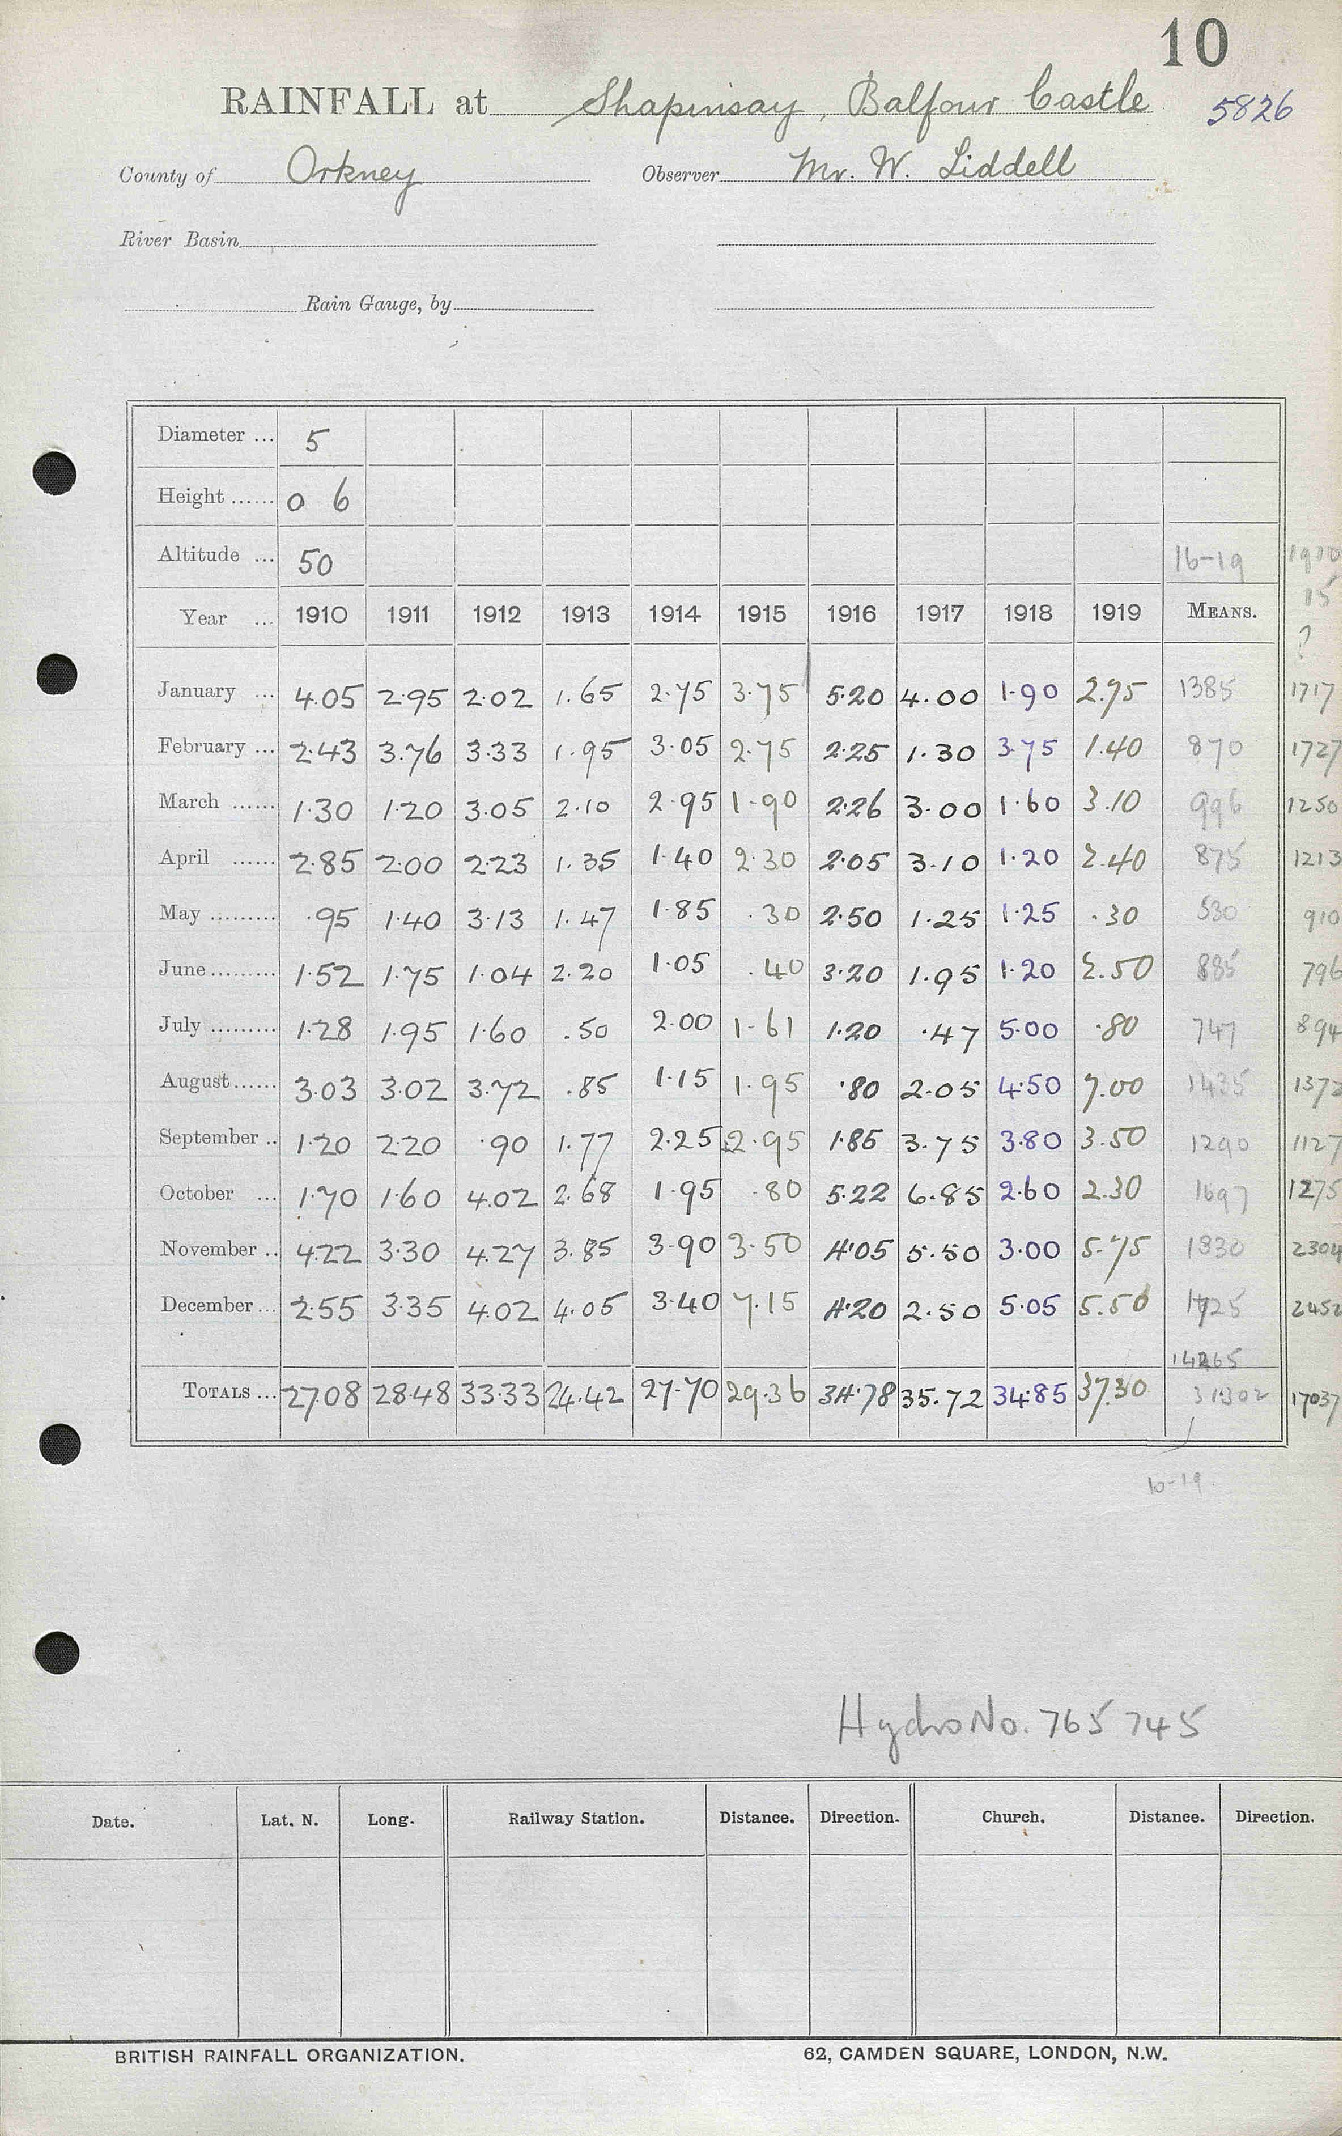 10
RAINFALL at Shapinsay, Balfour Castle 5826
County of Orkney Observer Mr. W. Liddell
River Basin
Rain Gauge, by
Diameter ... 5
Height ...... 0 6
Altitude ... 50 16-19 1910
15
Year ... 1910 1911 1912 1913 1914 1915 1916 1917 1918 1919 MEANS.
?
January ... 4.05 2.95 2.02 1.65 2.75 3.75 5.20 4.00 1.90 2.95 1385 1717
February ... 2.43 3.76 3.33 1.95 3.05 2.75 2.25 1.30 3.75 1.40 870 1727
March ...... 1.30 1.20 3.05 2.10 2.95 1.90 2.26 3.00 1.60 3.10 996 1250
April ...... 2.85 2.00 2.23 1.35 1.40 2.30 2.05 3.10 1.20 2.40 875 1213
May ......... .95 1.40 3.13 1.47 1.85 .30 2.50 1.25 1.25 .30 530 910
June......... 1.52 1.75 1.04 2.20 1.05 .40 3.20 1.95 1.20 2.50 885 796
July ......... 1.28 1.95 1.60 .50 2.00 1.61 1.20 .47 5.00 .80 747 894
August...... 3.03 3.02 3.72 .85 1.15 1.95 .80 2.05 4.50 7.00 1435 1372
September .. 1.20 2.20 .90 1.77 2.25 2.95 1.85 3.75 3.80 3.50 1290 1127
October ... 1.70 1.60 4.02 2.68 1.95 .80 5.22 6.85 2.60 2.30 1697 1275
November .. 4.22 3.30 4.27 3.85 3.90 3.50 4.05 5.50 3.00 5.75 1830 2304
December... 2.55 3.35 4.02 4.05 3.40 7.15 4.20 2.50 5.05 5.50 1725 2452
14265
TOTALS ... 27.08 28.48 33.33 24.42 27.70 29.36 34.78 35.72 34.85 37.30 31302 17037
10-19
Hydro No. 765745
Date. Lat. N. Long. Railway Station. Distance. Direction. Church. Distance. Direction.
BRITISH RAINFALL ORGANIZATION. 62, CAMDEN SQUARE, LONDON, N.W.